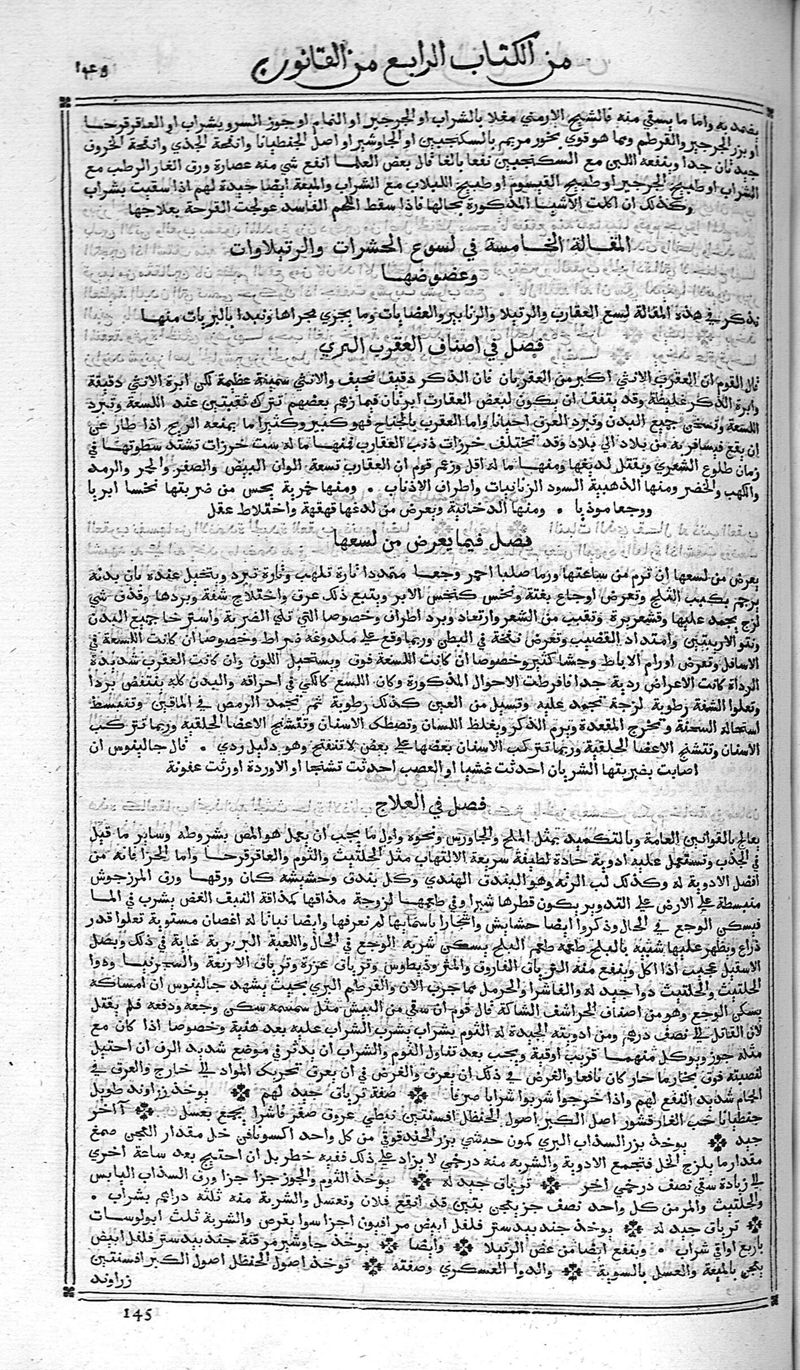 من الكتاب الرابع من القانون
١٤٥
يضمد به واما ما يسقي منه فالشيح الارمني مغلا بالشراب او الجرجير او النمام او جوز السرو بشراب او العاقرقرحا
او بزر الجرجير والقرطم ومما هو قوي بخور مريم بالسكنجبين او الجاوشير او اصل الجنطيانا وانفحة الجدي وانفحة الخروف
جيد فان جدا وينفعه اللبن مع السكنجبين نفعا بالغا قال بعض العلما انفع شي منه عصارة ورق الغار الرطب مع
الشراب او طبيخ الجرجير او طبيخ القيسوم او طبيخ اللبلاب مع الشراب والميعة ايضا جيدة لهم اذا سقيت بشراب
وكذلك ان اكلت الاشيا المذكورة بحالها فاذا سقط اللحم الفاسد عولجت القرحة بعلاجها
المقالة الخامسة في لسوع الحشرات والرتيلاوات
وعضوضها
نذكر في هذه المقالة لسع العقارب والرتيلا والزنابير والعضايات وما يجري مجراها ونبدا بالبريات منها
فصل في اصناف العقرب البري
قال القوم ان العقرب الانثي اكبر من العقربان فان الذكر دقيف نحيف والانثي سمينة عظمة لكن ابرة الانثي دقيقة
وابرة الذكر غليظة وقد يتفف ان يكون لبعض العقارب ابرتان فيما زعم بعضهم تترك ثقبتين عند اللسعة وتبرد
اللسعة وتسخن جميع البدن وتبرد العرق احيانا واما العقرب بالجناح فهو كبير وكثيرا ما يمنعه الريح اذا طار عن
ان يقع فيسافر به من بلاد الي بلاد وقد تختلف خرزات ذنب العقارب فمنها ما له ست خرزات تشتد سطوتها في
زمان طلوع الشعري ويقتل لديغها ومنها ما له اقل وزعم قوم ان العقارب تسعة الوان البيض والصفر والحمر والرمد
والكهب والخضر ومنها الذهبية السود الزبانيات واطراف الاذناب ٠ ومنها خمرية يحس من ضربتها نخسا ابريا
ووجعا موذيا ٠ ومنها الدخانية ويعرض من لدغها قهقهة واختلاط عقل
فصل فيما يعرض من لسعها
يعرض من لسعها ان ترم من ساعتها ورما صلبا احمر وجعا متمددا تارة تلهب وتارة تبرد ويتخيل عنده بان بدنه
يرجم بكبب الثلج وتعرض اوجاع بغتة ونخس كنخس الابر ويتبع ذلك عرق واختلاج شفة وبردها وقذف شي
لزج يجمد عليها وقشعريرة وتقبب من الشعر وارتعاد وبرد اطراف وخصوصا التي تلي الضربة واسترخا جميع البدن
ونتو الاربيتين وامتداد القضيب وتعرض نفخة في البطن وربما وقع علي ملدوغه ضراط وخصوصا ان كانت اللسعة في
الاسافل وتعرض اورام الاباط وجشا كثير وخصوصا ان كانت اللسعة فوق ويستحيل اللون وان كانت العقرب شديدة
الرداة كانت الاعراض ردية جدا فافرطت الاحوال المذكورة وكان اللسع كالكي في احراقه والبدن كله ينتفض بردا
وتعلوا الشفة رطوبة لزجة تجمد عليه وتسيل من العين كذلك رطوبة ثم يجمد الرمص في الماقين وتنبسط
استحالة السحنة وتخرج المقعدة ويرم الذكر ويغلظ اللسان وتصطك الاسنان وتتشنج الاعضا الخلقية وربما تتركب
الاسنان وتتشنج الاعضا الخلقية وربما تتركب الاسنان بعضها علي بعض لا تنفتح وهو دليل ردي ٠ قال جالينوس ان
اصابت بضربتها الشريان احدثت غشيا او العصب احدثت تشنجا او الاوردة اورثت عفونة
فصل في العلاج
يعالج بالقوانين العامة وبالتكميد بمثل الملح والجاورس ونحوه واول ما يجب ان يعمل هو المص بشروطه وساير ما قيل
في الجذب وتستعمل عليه ادوية حادة لطيفة سريعة الالتهاب مثل الحلتيث والثوم والعاقرقرحا واما الحزا فانه من
افضل الادوية له وكذلك لب الرته وهو البندق الهندي وكل بندق وحشيشه كان ورقها ورق المرزجوش
منبسطة علي الارض علي التدوير يكون قطرها شبرا وفي طعمها لزوجة مذاقها كمذاقة النبق الغض يشرب في الما
فيسكن الوجع في الحال وذكروا ايضا حشايش واشجارا باسمايها لم نعرفها وايضا نباتا له اغصان مستوية تعلوا قدر
ذراع ويظهر عليها شبيه بالبلح طعمه طعم البلح يسكن شربه الوجع في الحال واللعبة البربرية غاية في ذلك وبصل
الاسقيل عجيب اذا اكل وينفع منه الترياق الفاروق والمثروذيطوس وترياق عزرة وترياق الاربعة والسجزنيا ودوا
الحلتيث والحلتيث دوا جيد له والفاشرا والحرمل مما جرب الان والقرطم البري بحيث يشهد جالينوس ان امساكه
يسكن الوجع وهو من اصناف الحراشف الشاكة قال قوم ان سقي من البيش مثل سمسمه سكن وجعه ودفعه فلم يقتل
لان القاتل الي نصف درهم ومن ادويته الجيدة له الثوم بشراب يشرب الشراب عليه بعد هنية وخصوصا اذا كان مع
مثله جوز ويوكل منهما قريب اوقية ويجب بعد تناول الثوم والشراب ان يدثر في موضع شديد الدف ان احتيل
لنصبته فوق بخار ما حار كان نافعا والغرض في ذلك ان يعرق والغرض في ان يعرق تحريك المواد الي خارج والعرق في
الحمام شديد النفع لهم واذا خرجوا شربوا شرابا صرفا ٠ صفة ترياق جيد لهم ※ يوخذ زراوند طويل
جنطيانا حب الغار قشور اصل الكبر اصول الحنظل افسنتين نبطي عروق صفر فاشرا يجمع بعسل ※ اخر
جيد ※ يوخذ بزر السذاب البري كمون حبشي بزر الحندقوقي من كل واحد اكسوثافن خل مقدار العجن صمغ
مقدار ما يلزج الخل فتجمع الادوية والشربة منه درخمي لا يزاد علي ذلك ففيه خطر بل ان احتيج بعد ساعة اخري
الي زيادة سقي نصف درخمي اخر ※ ترياق جيد له ※ يوخذ الثوم والجوز جزا جزا ورق السذاب اليابس
والحلتيث والمر من كل واحد نصف جز يعجن بتين قد انقع فلان وتعسل والشربة منه ثلثه دراهم بشراب ٠
※ ترياق جيد له ※ يوخذ جندبيدستر فلفل ابيض مر افيون اجزا سوا يقرص والشربة ثلث ابولوسات
باربع اواقي شراب ٠ وينفع ايضا من عض الرتيلا ※ وايضا ※ يوخذ جاوشير مر قنة جندبيدستر فلفل ابيض
يعجن بالميعة والعسل بالسوية ※ والدوا العسكري وصفته ※ توخذ اصول الحنظل اصول الكبر افسنتين
زراوند
145